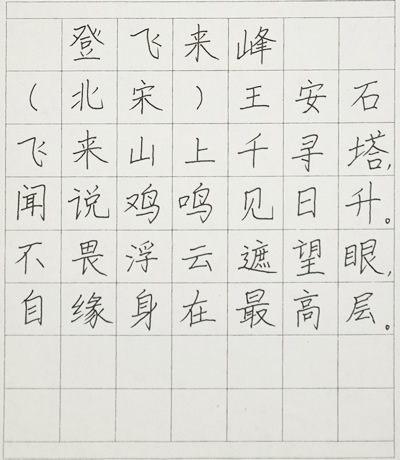 登飞来峰
(北宋)王安石
飞来山上千寻塔,
闻说鸡鸣见日升。
不畏浮云遮望眼,
自缘身在最高层。